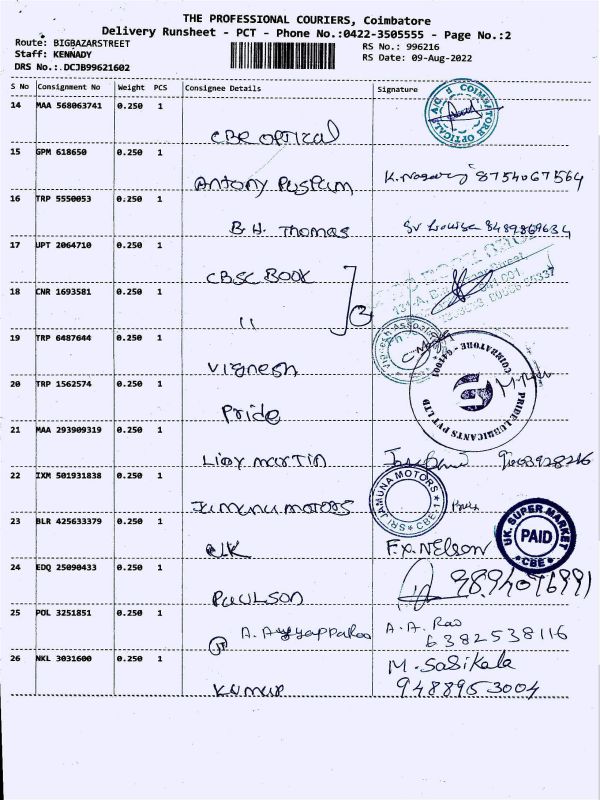 THE PROFESSIONAL COURIERS, Coimbatore
Delivery Runsheet - PCT - Phone No.:0422-3505555 - Page No.:2
Route: BIGBAZARSTREET
RS No.: 996216
Staff: KENNADY
RS Date: 09-Aug-2022
DRS No.:.DCJB99621602
S No Consignment No Weight PCS Consignee Details Signature
14 MAA 568063741 0.250 1
CBR OPTICAL
COIMBATORE OPTICAL
15 GPM 618650 0.250 1
Antony Puspam K. 8754067564
16 TRP 5550053 0.250 1
B.H. Thomas 8489869634
17 UPT 2064710 0.250 1
CBSC BOOK
18 CNR 1693581 0.250 1
11 2
19 TRP 6487644 0.250 1
Vignesh
20 TRP 1562574 0.250 1
Pride
PRIDE LUBRICANTS PVT LTD
COIMBATORE - 641001
21 MAA 293909319 0.250 1
Lisy martin
22 IXM 501931838 0.250 1
Jumunu motors
SRI JAMUNA MOTORS
CBE-1
23 BLR 425633379 0.250 1
UK F.X. NELSON
UK. SUPER MARKET
PAID
CBE
24 EDQ 25090433 0.250 1
Paulson
25 POL 3251851 0.250 1
A. Ayyappa Rao A. A. Rao
6382538116
26 NKL 3031600 0.250 1
Kumar M. Sasikala
9488953004